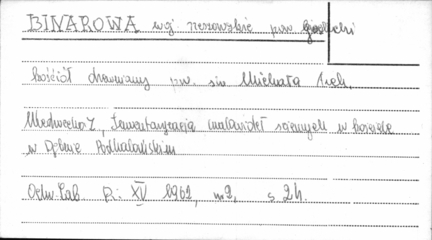 BINAROWA woj. rzeszowskie pow gorlicki
kościół drewniany p.w. św Michała Arch.
Medwecka Z, Inwentaryzacja malowideł ściennych w kościele
w Dębnie Podhalańskim
Ochr. Zab R: XV 1962, nr 2, s 24.